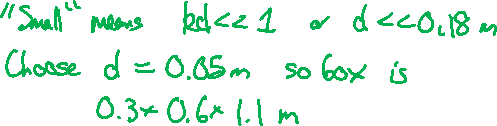 "Small" means kd<<1 or d<<0.18 m
Choose d = 0.05m so box is
0.3 × 0.6 × 1.1 m